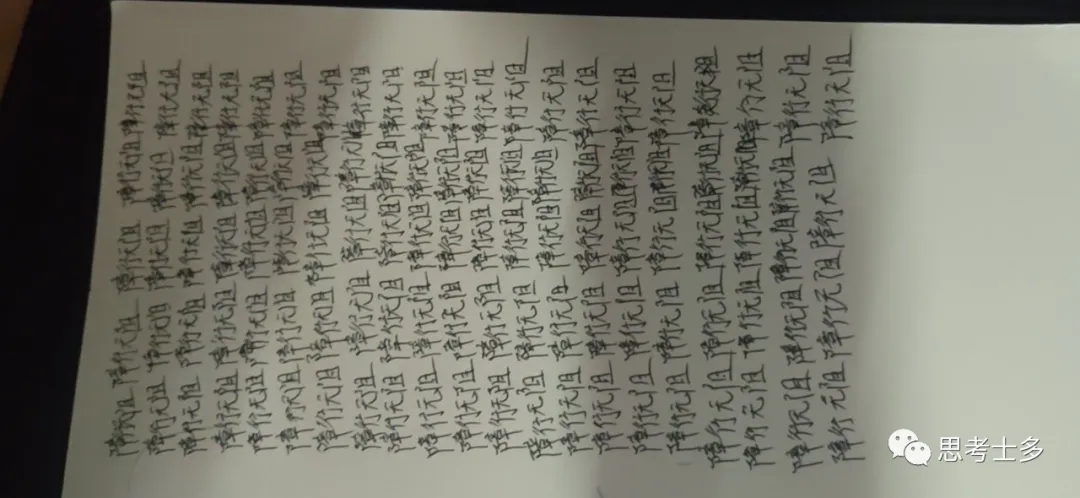 障行无阻 障行无阻 障行无阻 障行无阻 障行无阻
障行无阻 障行无阻 障行无阻 障行无阻 障行无阻
障行无阻 障行无阻 障行无阻 障行无阻 障行无阻
障行无阻 障行无阻 障行无阻 障行无阻 障行无阻
障行无阻 障行无阻 障行无阻 障行无阻 障行无阻
障行无阻 障行无阻 障行无阻 障行无阻 障行无阻
障行无阻 障行无阻 障行无阻 障行无阻 障行无阻
障行无阻 障行无阻 障行无阻 障行无阻 障行无阻
障行无阻 障行无阻 障行无阻 障行无阻 障行无阻
障行无阻 障行无阻 障行无阻 障行无阻 障行无阻
障行无阻 障行无阻 障行无阻 障行无阻 障行无阻
障行无阻 障行无阻 障行无阻 障行无阻 障行无阻
障行无阻 障行无阻 障行无阻 障行无阻 障行无阻
障行无阻 障行无阻 障行无阻 障行无阻 障行无阻
障行无阻 障行无阻 障行无阻 障行无阻 障行无阻
障行无阻 障行无阻 障行无阻 障行无阻 障行无阻
障行无阻 障行无阻 障行无阻 障行无阻 障行无阻
障行无阻 障行无阻 障行无阻 障行无阻 障行无阻
障行无阻 障行无阻 障行无阻 障行无阻 障行无阻
障行无阻 障行无阻 障行无阻 障行无阻 障行无阻
障行无阻 障行无阻 障行无阻 障行无阻
思考士多